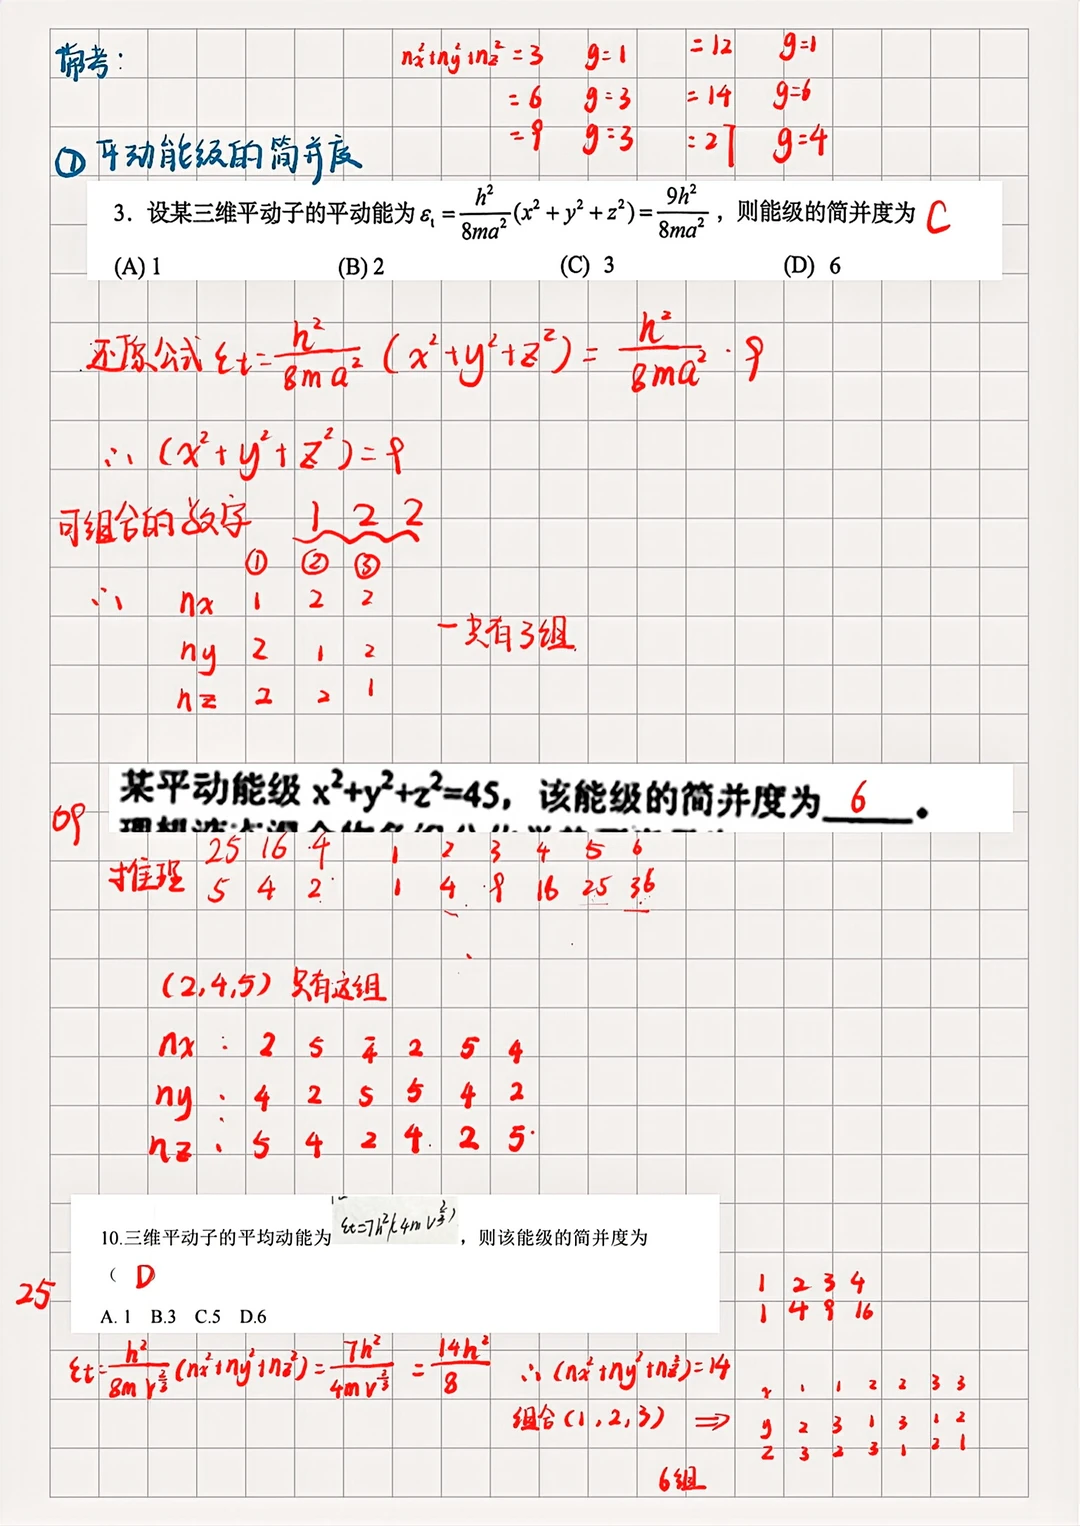 备考:
nx²+ny²+nz²=3 g=1 =12 g=1
=6 g=3 =14 g=6
=9 g=3 =27 g=4
① 平动能级的简并度
3. 设某三维平动子的平动能为 ε₁ = h²/8ma² (x² + y² + z²) = 9h²/8ma² ，则能级的简并度为 C
(A) 1 (B) 2 (C) 3 (D) 6
还原公式 εt = h²/8ma² (x²+y²+z²) = h²/8ma² · 9
∴ (x²+y²+z²)=9
可组合的数字 1 2 2
① ② ③
∴ nx 1 2 2
ny 2 1 2
一共有3组
nz 2 2 1
09
某平动能级 x²+y²+z²=45，该能级的简并度为 6 。
推理 25 16 4 1 2 3 4 5 6
5 4 2 1 4 9 16 25 36
(2,4,5) 只有这组
nx : 2 5 4 2 5 4
ny : 4 2 5 5 4 2
nz : 5 4 2 4 2 5
25
10.三维平动子的平均动能为 εt=7h²/(4mV^(2/3)) ，则该能级的简并度为
（ D
A. 1 B.3 C.5 D.6
1 2 3 4
1 4 9 16
εt = h²/8mV^(2/3) (nx²+ny²+nz²) = 7h²/4mV^(2/3) = 14h²/8 ∴ (nx²+ny²+nz²)=14
组合(1,2,3) ⇒
x 1 1 2 2 3 3
y 2 3 1 3 1 2
z 3 2 3 1 2 1
6组